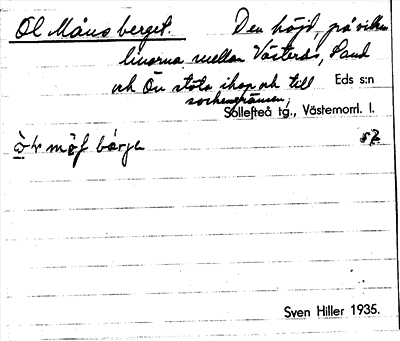 Ol Måns berget. Den höjd, på vilken
linorna mellan Västerås, Sand
och Ön stöta ihop och till Eds s:n
sockengränsen,
Sollefteå tg., Västernorrl. l.
Sven Hiller 1935.